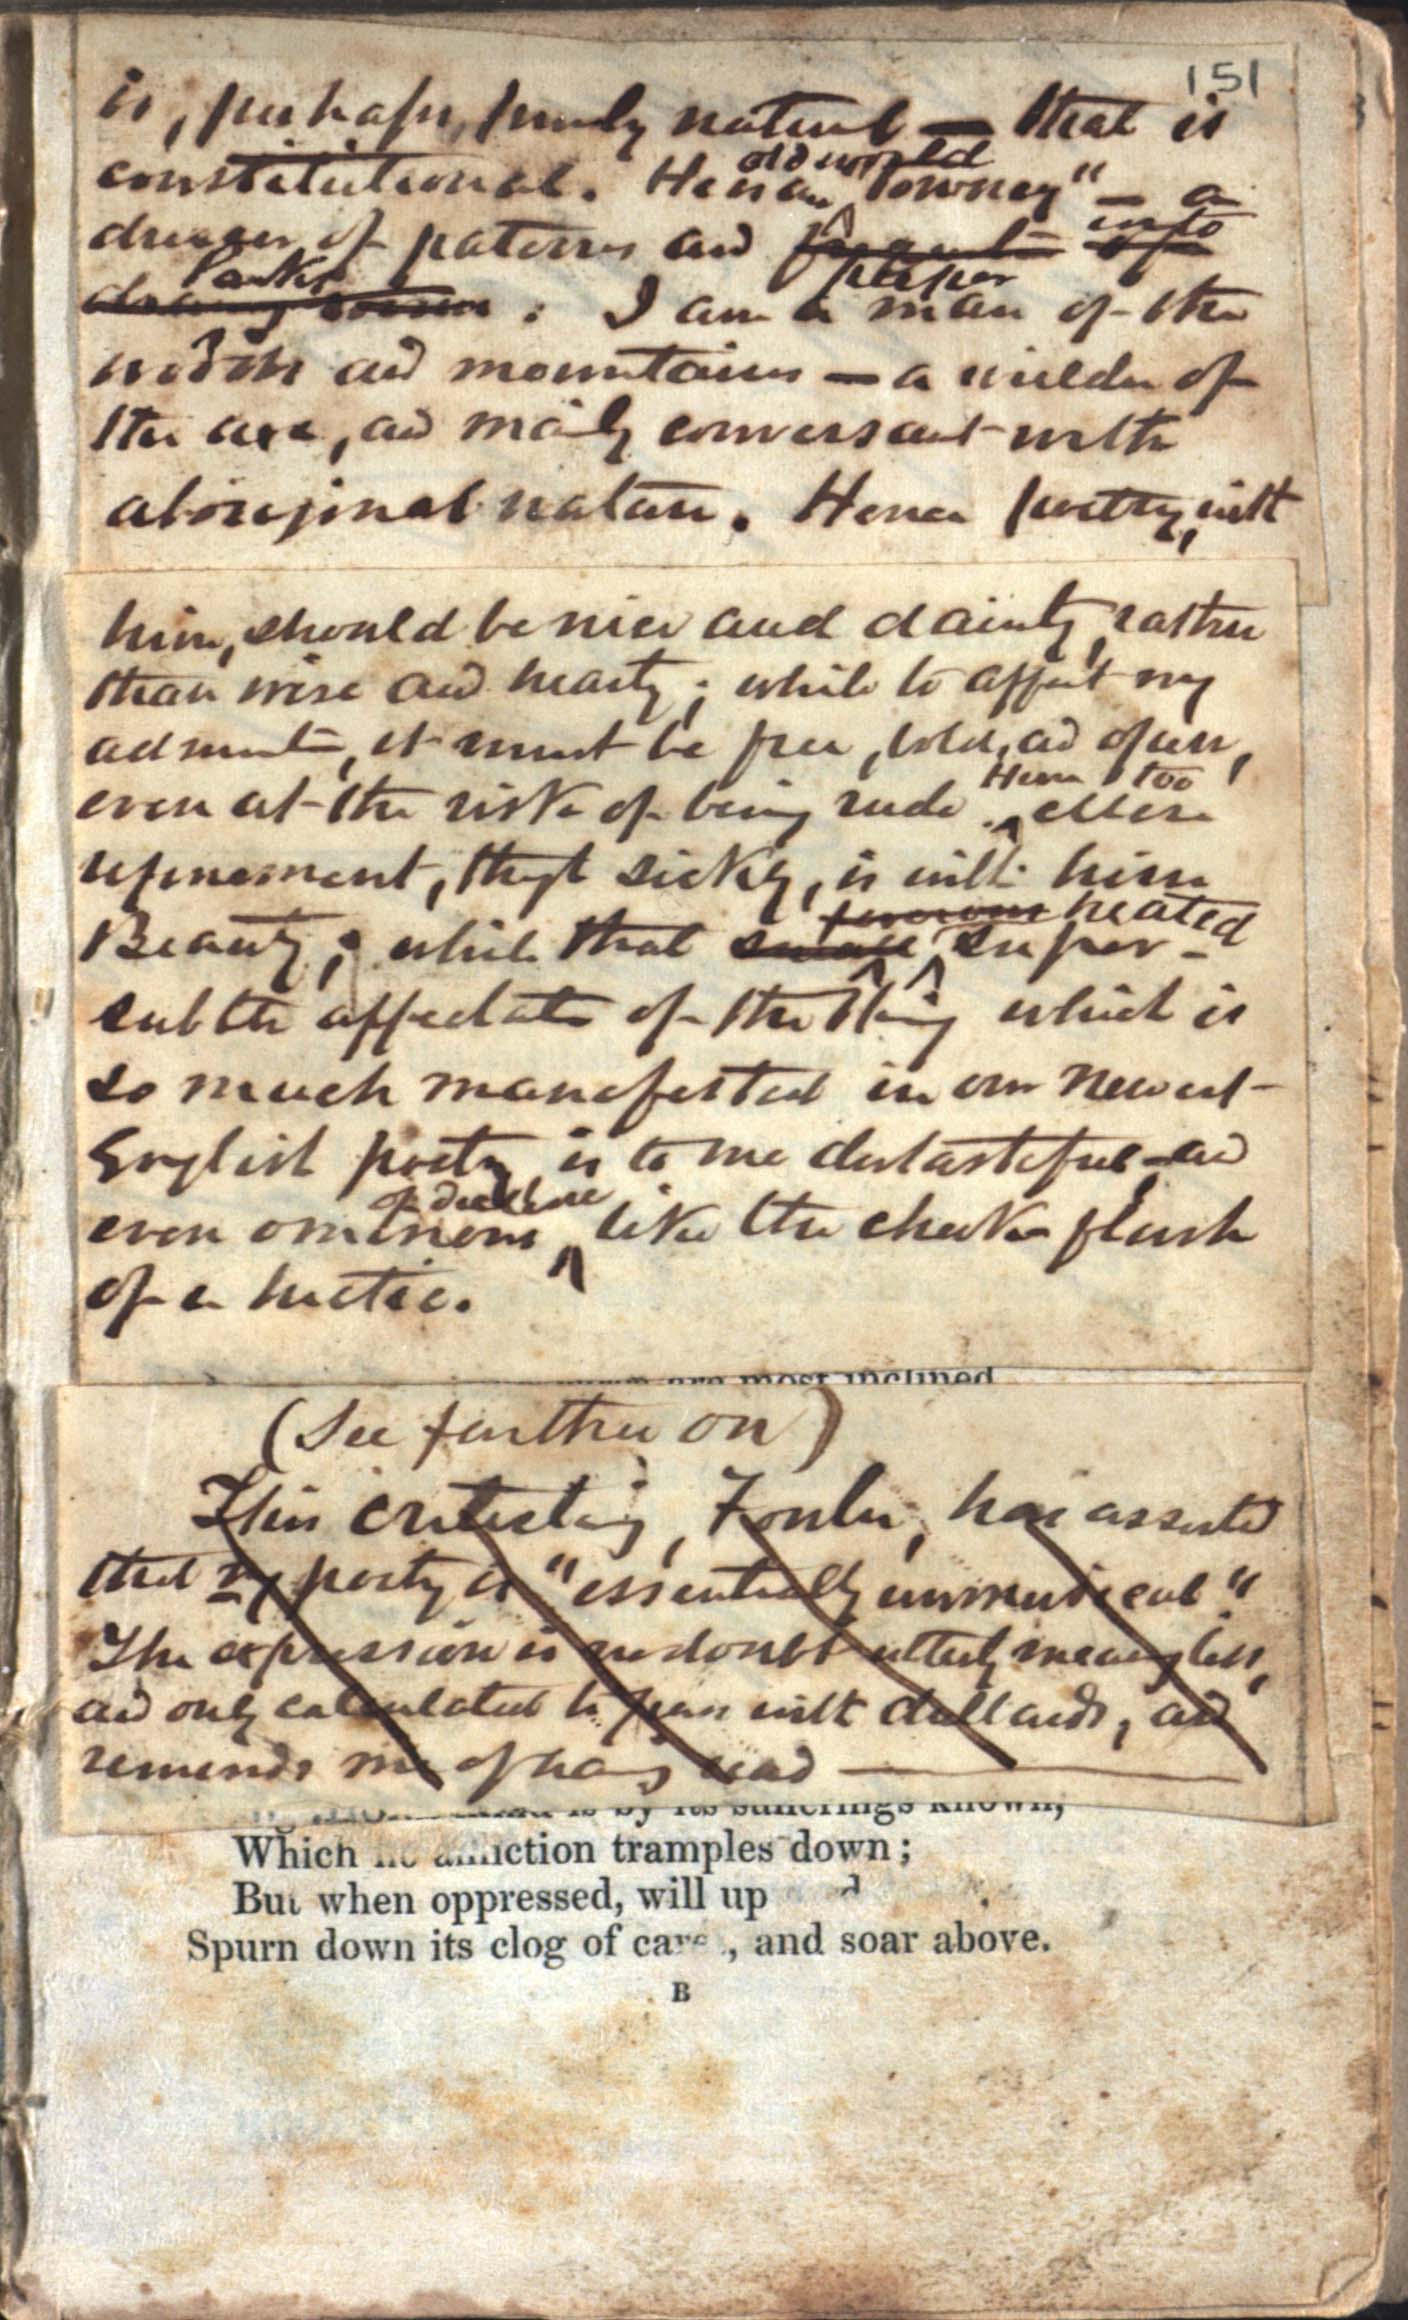 151
is, perhaps, purely natural — that is
constitutional. He is an old world "Towney" — a
dresser of paterres and into
Parks : I am a peeper man of the
woods and mountains — a wielder of
the axe, and mainly conversant with
aboriginal nature. Hence poetry, with
him, should be nice and dainty, rather
than wise and hearty; while to affect my
admirate, it must be free, bold, and open,
even at the risk of being rude. Hence too mere
refinement, thogh sickly, is with him
Beauty; while that heated super-
subtle affectate of the thing which is
so much manifested in our newest
English poetry is to me distasteful, and
even ominous of decline like the cheek flush
of a hectic.
are most inclined
(See further on)
This criticsting, Fowler, has asserted
that my poetry is "essentially unmusical."
The expression is no doubt utterly meangless,
and only calculated to pass with dullards, and
reminds me of havig read ———
is by its sufferings known,
Which no affliction tramples down;
But when oppressed, will up
Spurn down its clog of cares, and soar above.
B